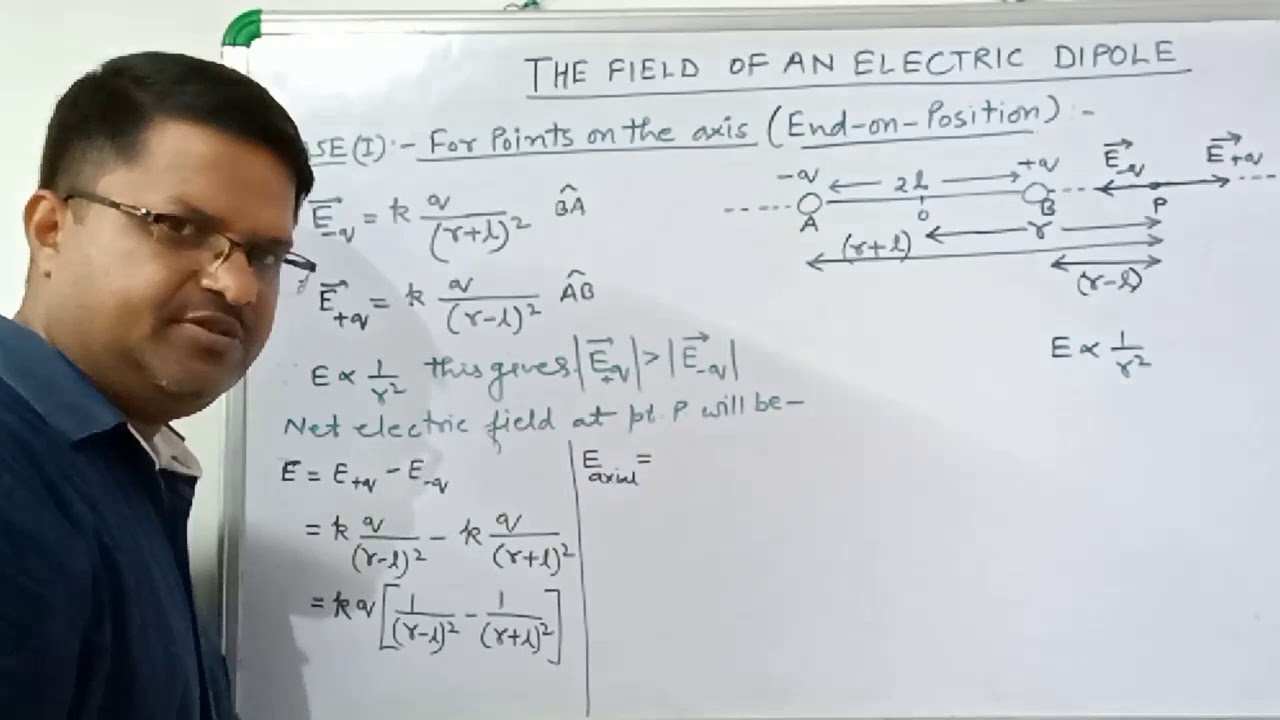 THE FIELD OF AN ELECTRIC DIPOLE
SE(I):- For Points on the axis (End-on-Position):-
E⃗₋q = k q/(r+l)² B̂A
E⃗₊q = k q/(r-l)² ÂB
E ∝ 1/r² this gives |E⃗₊q| > |E⃗₋q|
Net electric field at pt. P will be-
E = E₊q - E₋q
= k q/(r-l)² - k q/(r+l)²
= kq[1/(r-l)² - 1/(r+l)²]
E axial =
-q 2l +q E⃗₋q E⃗₊q
A o B P
r
(r+l)
(r-l)
E ∝ 1/r²